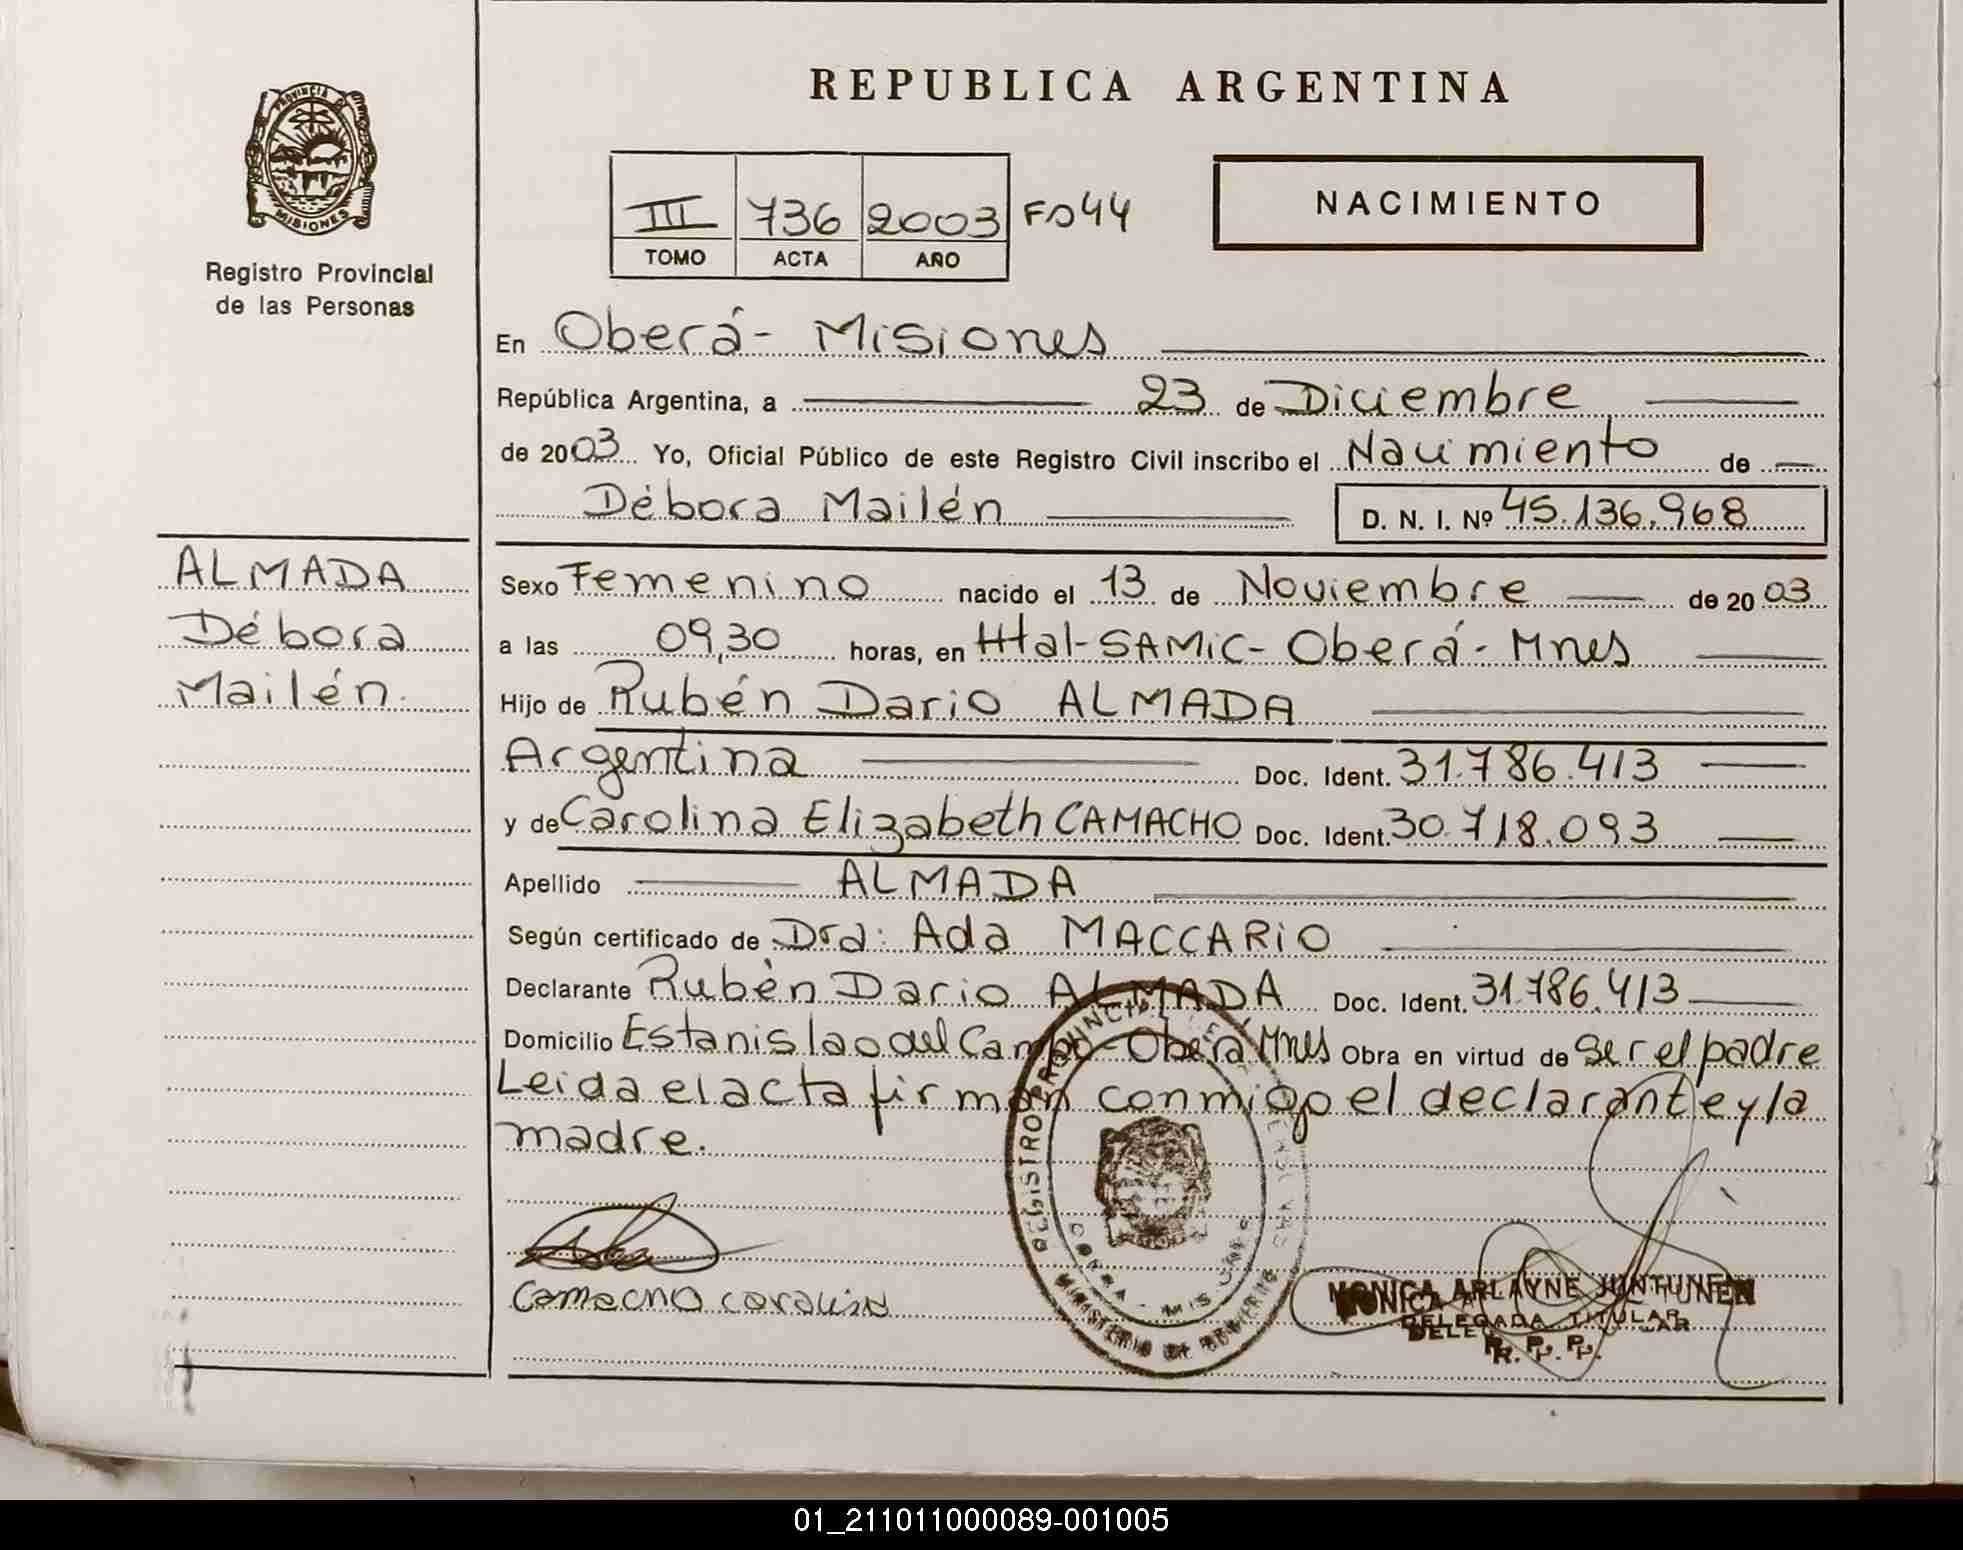 REPUBLICA ARGENTINA
PROVINCIA DE
MISIONES
Registro Provincial
de las Personas
III 736 2003 Fº 44
TOMO ACTA AÑO
NACIMIENTO
En Oberá - Misiones
República Argentina, a 23 de Diciembre
de 2003 Yo, Oficial Público de este Registro Civil inscribo el Nacimiento de
Débora Mailén D. N. I. Nº 45.136.968
ALMADA
Débora
Mailén.
Sexo Femenino nacido el 13 de Noviembre de 2003
a las 09,30 horas, en Htal - SAMiC - Oberá - Mnes
Hijo de Rubén Dario ALMADA
Argentina Doc. Ident. 31.786.413
y de Carolina Elizabeth CAMACHO Doc. Ident. 30.718.093
Apellido ALMADA
Según certificado de Dra: Ada MACCARiO
Declarante Rubén Dario ALMADA Doc. Ident. 31.786.413
Domicilio Estanislao del Campo - Oberá Mnes Obra en virtud de ser el padre
Leida el acta firman conmigo el declarante y la
madre.
REGISTRO PROVINCIAL DE LAS PERSONAS
OBERA - MISIONES
MINISTERIO DE GOBIERNO
Camacho Carolina
MONICA ARLAYNE JUNTUNEN
DELEGADA TITULAR
R. P. P.
01_211011000089-001005